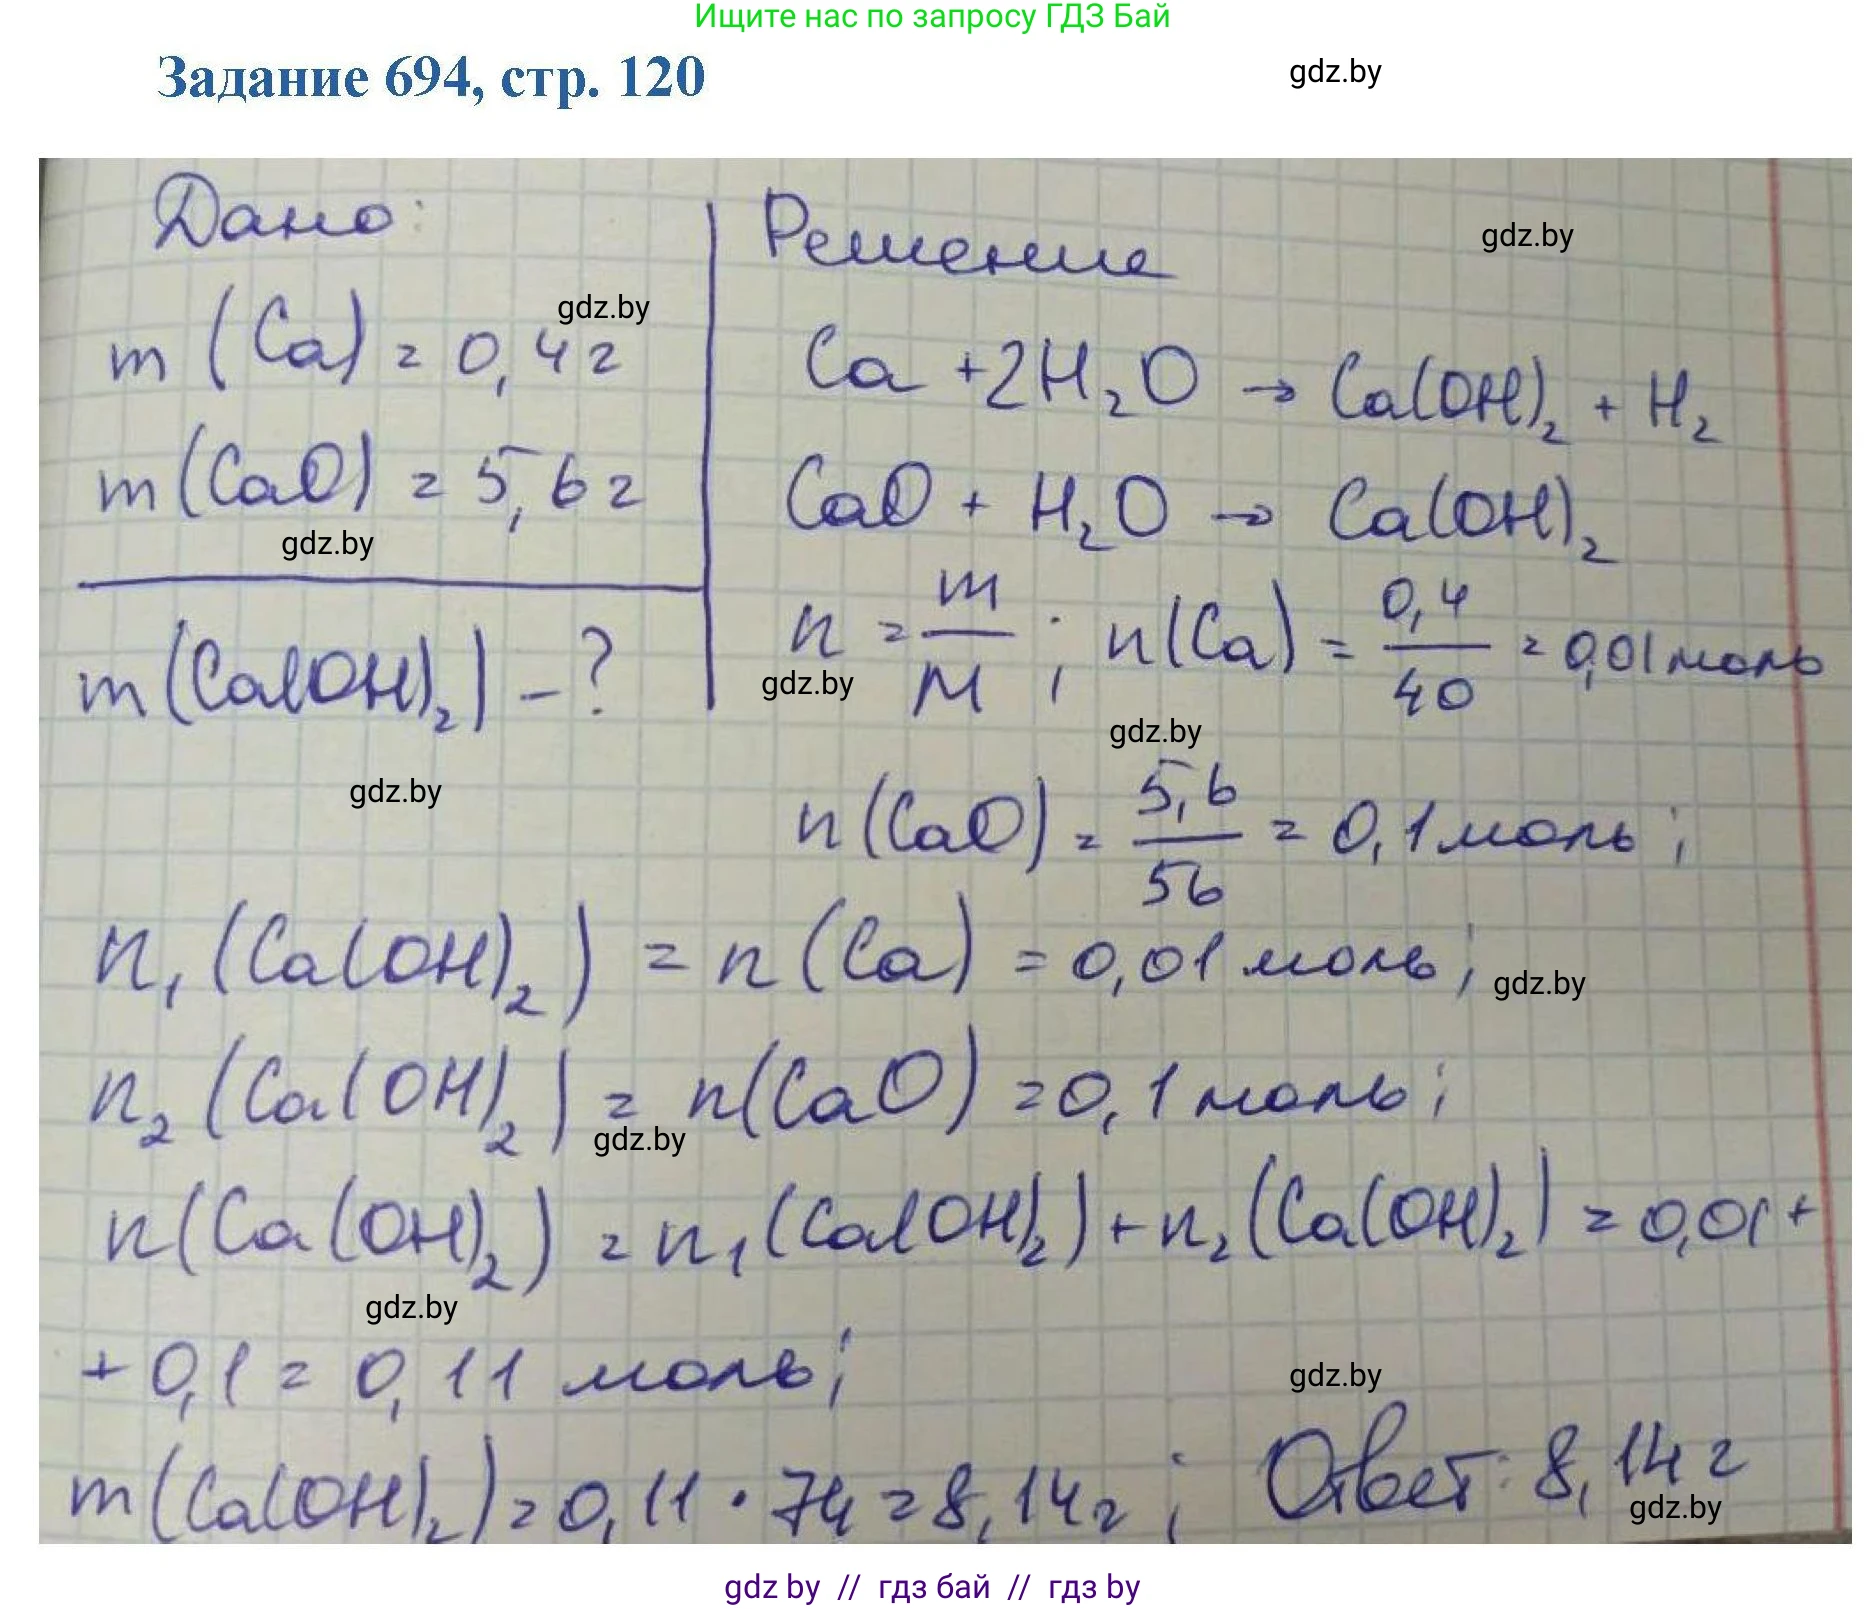 Ищите нас по запросу ГДЗ Бай
Задание 694, стр. 120
gdz.by
Дано:
m (Ca) = 0,4 г
gdz.by
m (CaO) = 5,6 г
gdz.by
m (Ca(OH)₂) - ?
gdz.by
Решение
gdz.by
Ca + 2H₂O → Ca(OH)₂ + H₂
CaO + H₂O → Ca(OH)₂
n = m/M ; n(Ca) = 0,4/40 = 0,01 моль
gdz.by
gdz.by
n(CaO) = 5,6/56 = 0,1 моль ;
n₁ (Ca(OH)₂) = n (Ca) = 0,01 моль ;
gdz.by
n₂ (Ca(OH)₂) = n(CaO) = 0,1 моль ;
gdz.by
n(Ca(OH)₂) = n₁ (Ca(OH)₂) + n₂ (Ca(OH)₂) = 0,01 +
gdz.by
+ 0,1 = 0,11 моль ;
gdz.by
m (Ca(OH)₂) = 0,11 · 74 = 8,14 г ; Ответ: 8,14 г
gdz.by
gdz by // гдз бай // гдз by